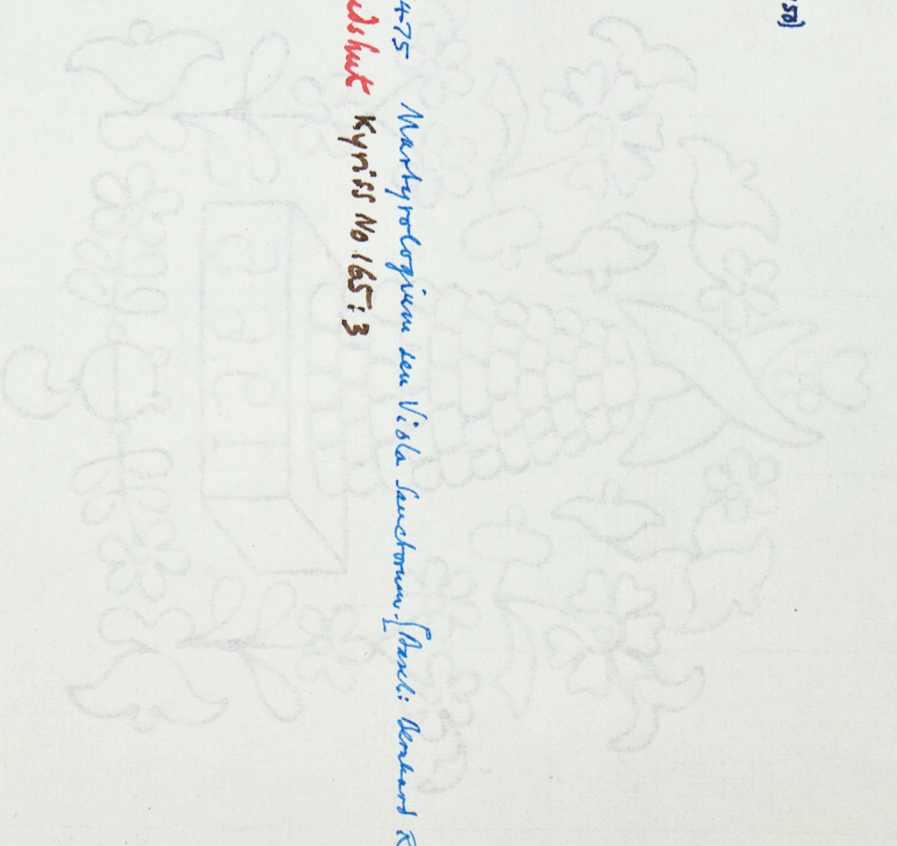 50)
475 Martyrologium seu Viola Sanctorum.-[Basel: Bernhard R
dshut Kyriss No 165:3